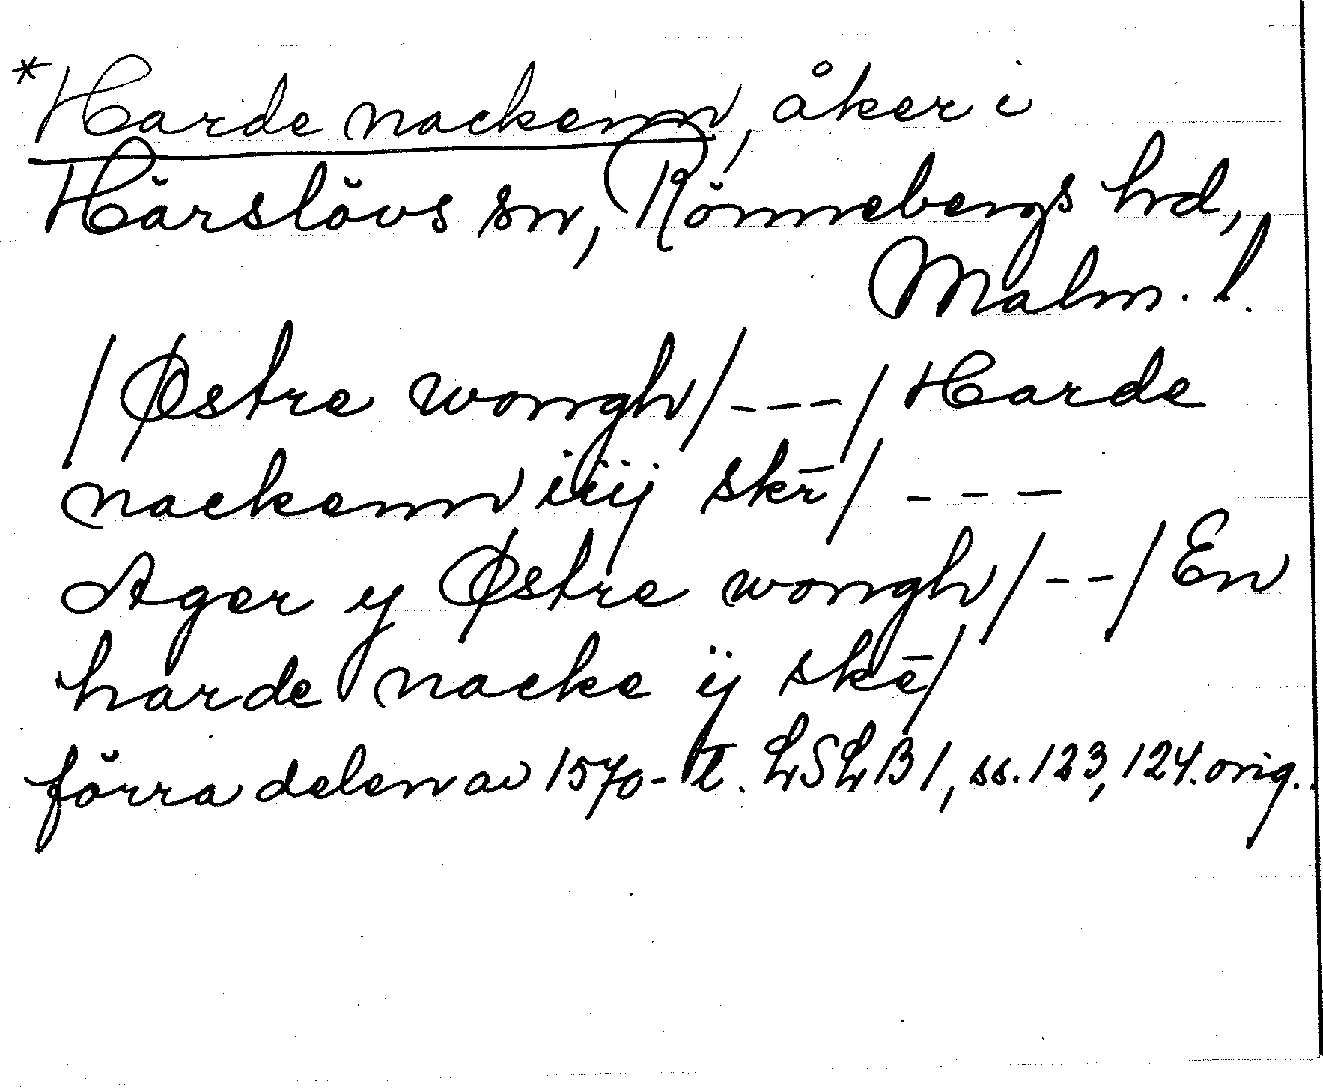 *Harde nackenn, åker i
Härslövs sn, Rönnebergs hd,
Malm. l.
/Østre wongh/ --- / Harde
nackenn iiij skē/ ---
Ager y Østre wongh/ -- / En
harde nacke ij skē/
förra delen av 1570-t. LSLB1, ss. 123, 124. orig.